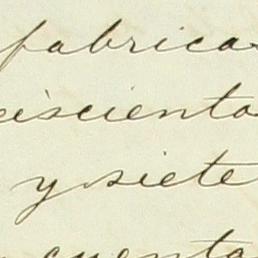 fabrica
eiscienta
y siete
cuenta